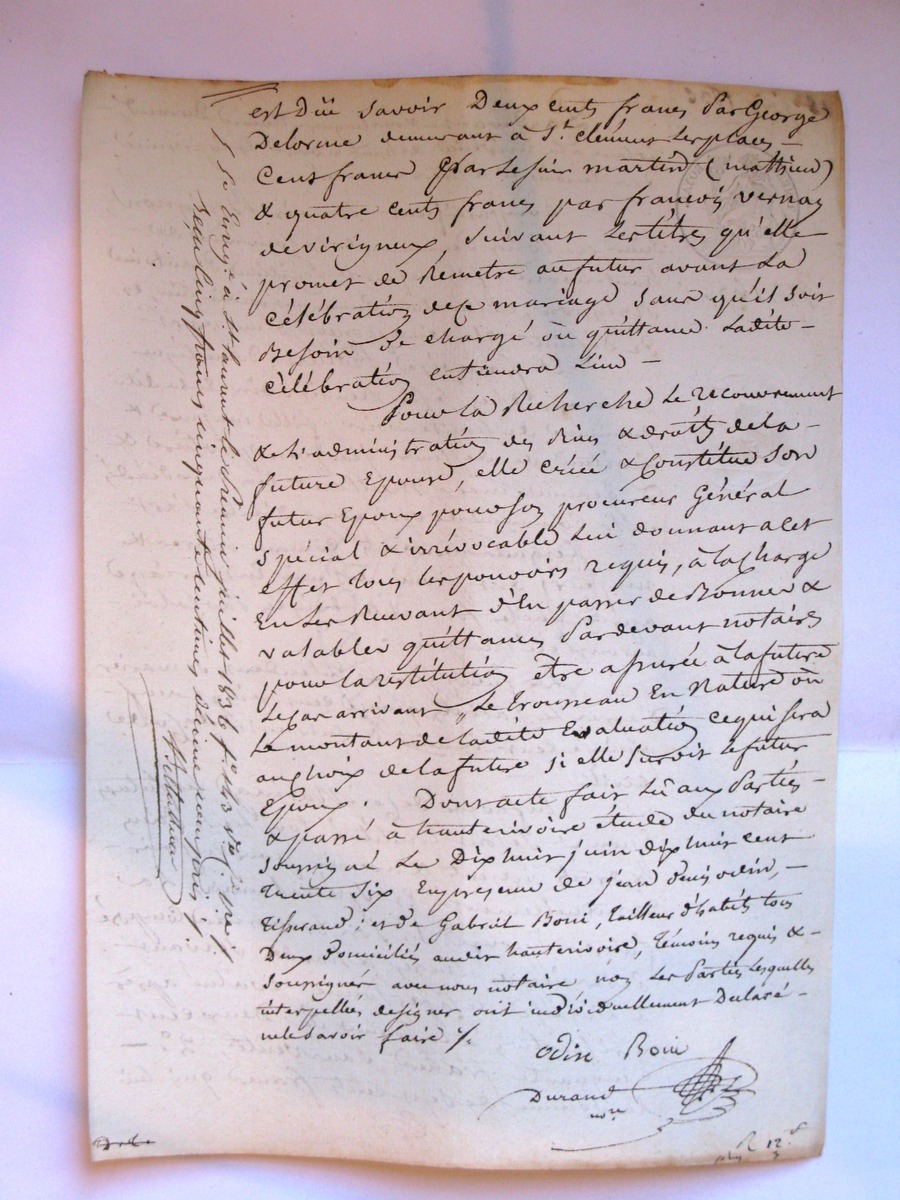 est Düe savoir Deux cents francs Par George
Delorme demeurant à St. Clément les places -
Cent francs Par le sieur martin (mathieu)
& quatre cents francs par françois vernay
de virigneux, suivant les titres qu'elle
promet de Remetre au futur avant La
célébration de ce mariage sans qu'il soit
Besoin de chargé où quittance Ladite -
célébration en tiendra Lieu -
Pour la Recherche Le recouvrement
& et l'administration des Biens & droits de la -
future Epouse, elle créée & Constitue son
futur Epoux pour son procureur Général
spécial & irrévocable Lui donnant à cet
effet tous les pouvoirs requis, à la Charge
En Les Recevant d'En passer de Bonnes &
valables quittances Pardevant notaires
pour la restitution être assurée à la future
Le cas arrivant, Le trousseau En Nature où
Le montant de ladite Evaluation ce qui sera
au choix de la future si elle survit le futur
Epoux. Dont acte fait Lû aux Parties -
& passé à hauterivoire étude du notaire
soussigné Le Dix huit juin dix huit cent
trente six En présence de jean denis odin, -
tisserand ; et de Gabriel Boni, tailleur d'habits tous
Deux domiciliés audit hauterivoire, témoins requis & -
soussignés avec nous notaire non Les Parties Lesquelles
interpellées de signer ont individuellement Déclaré -
ne le savoir faire ./.
odin Boni
Durand
nore
Enregé à St. Laurent le juillet 1836 fo. 43 Vo.
reçu cinq francs cinquante centimes dixme compris ./.
12